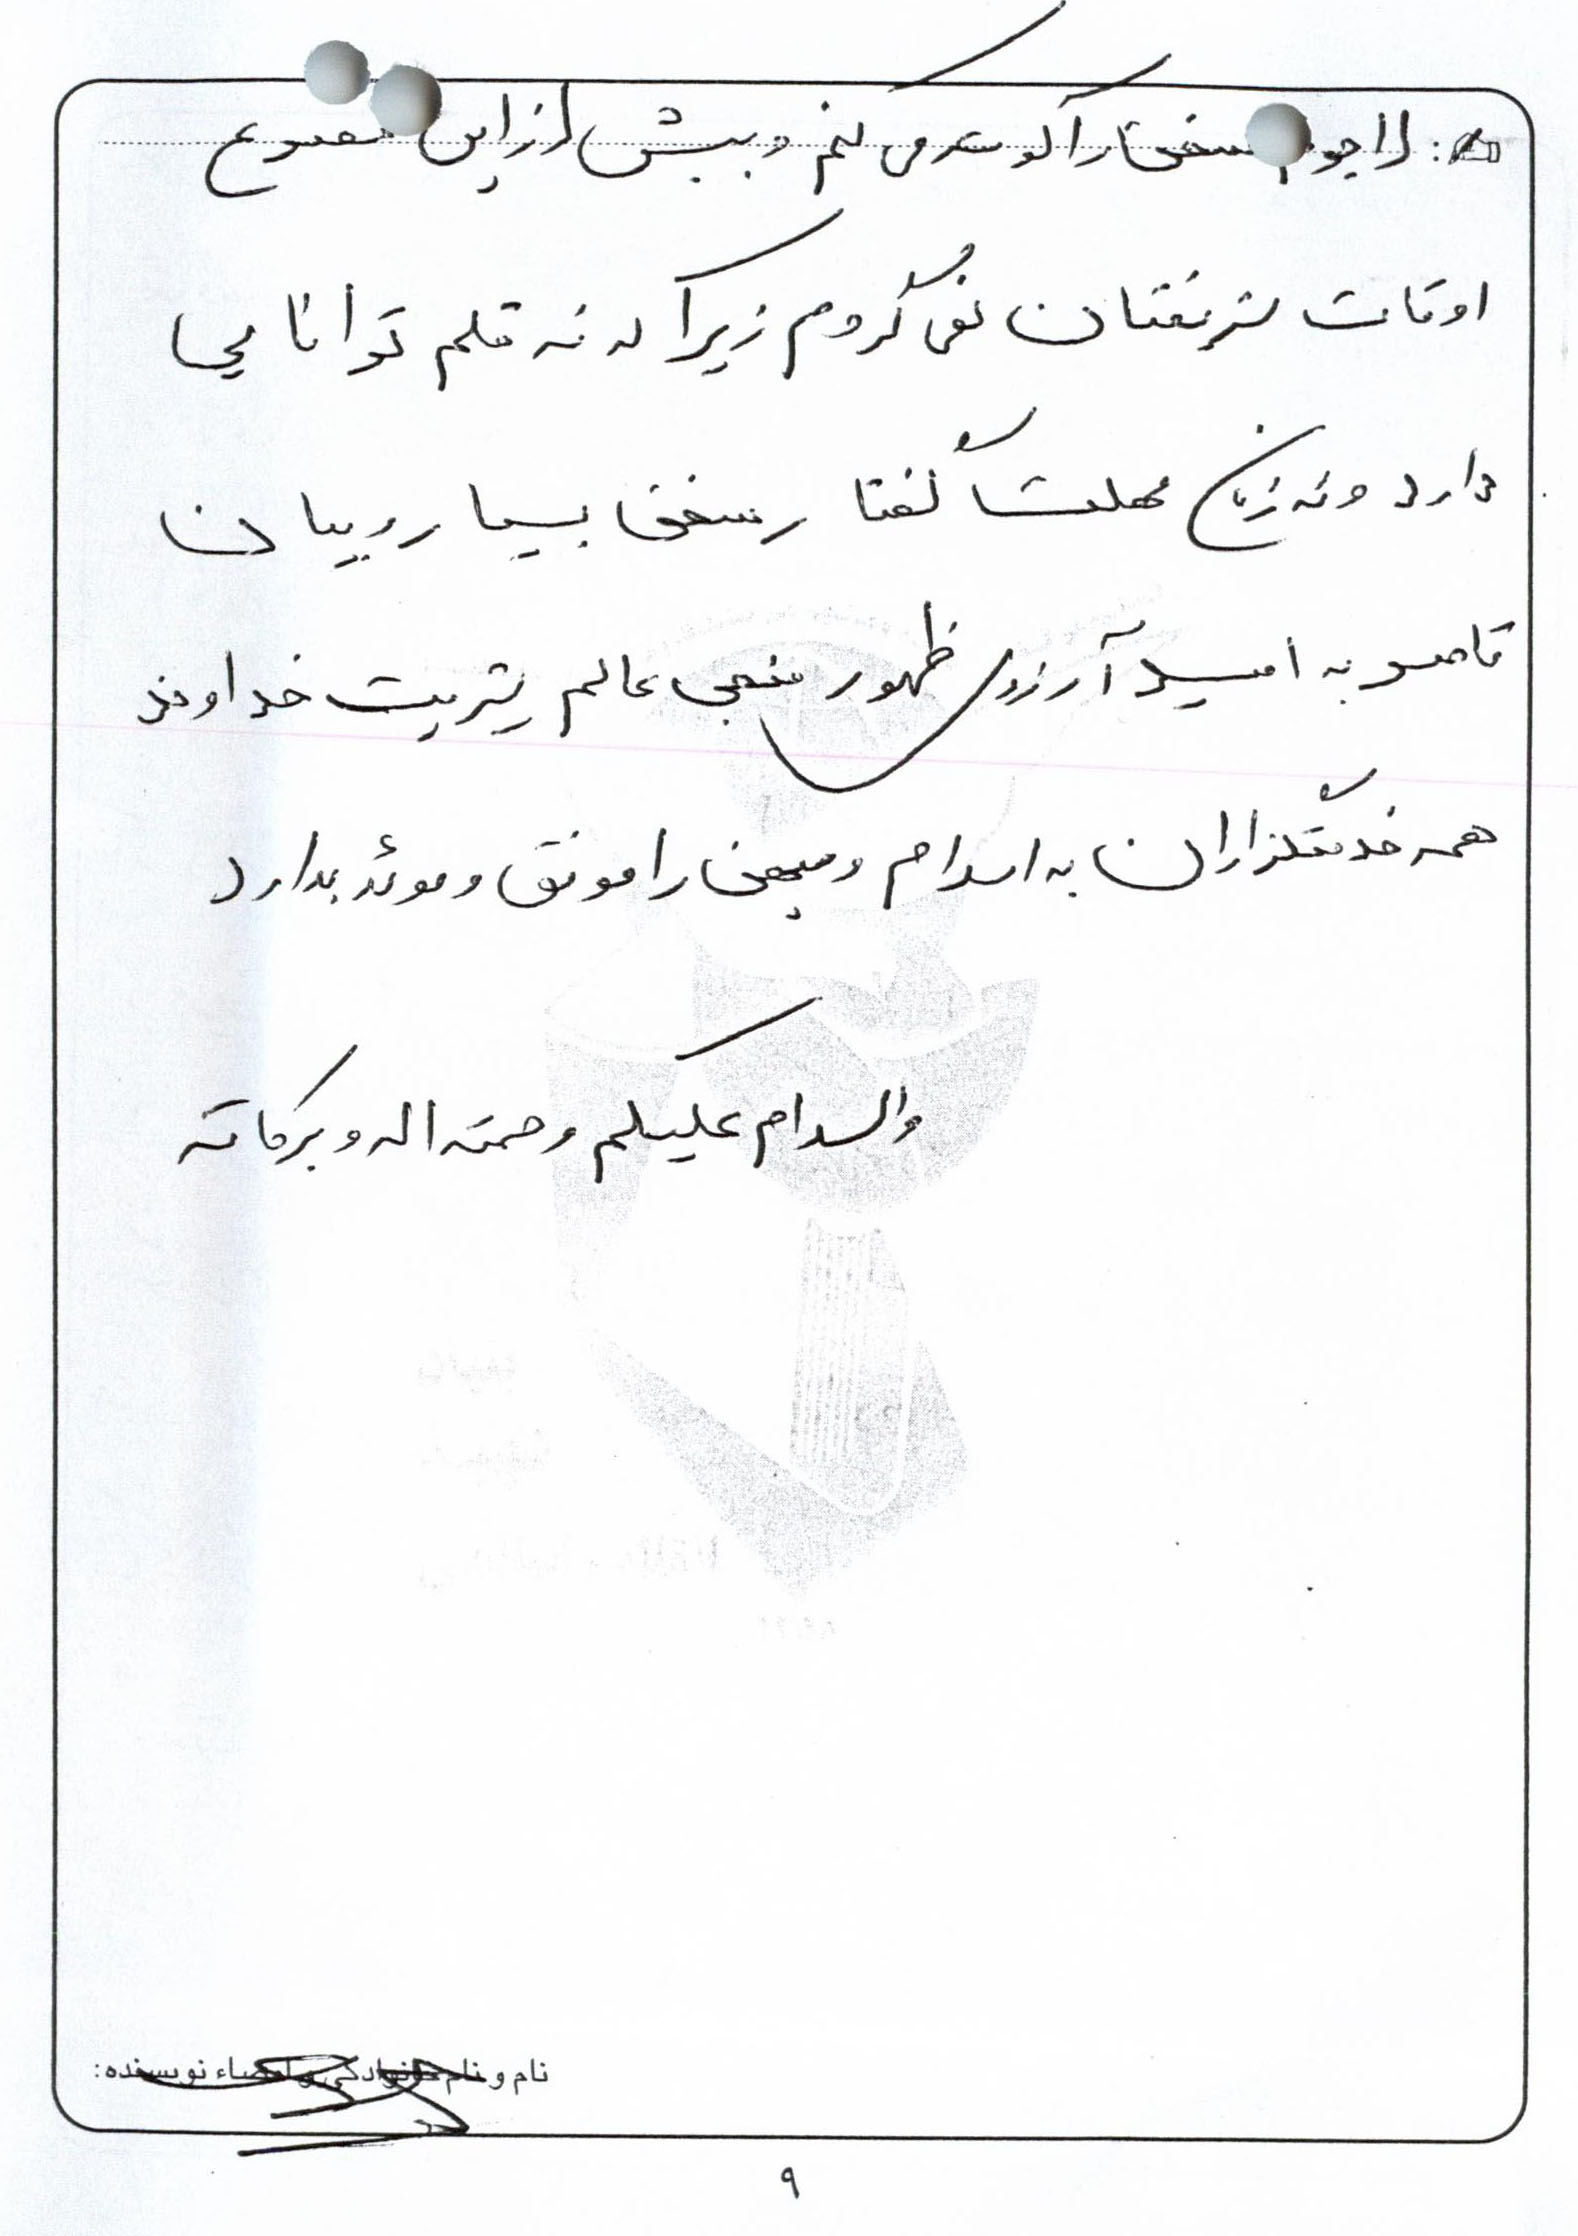 سخن را کوته می کنم و بیش از این مصدع
اوقات شریفتان نمی گردم زیرا که نه قلم توانایی
دارد و نه زبان مهلت گفتار سخن بسیار و بیان
قاصر به امید آرزوی ظهور منجی عالم بشریت خداوند
همه خدمتگذاران به اسلام و میهن را موفق و موئد بدارد
والسلام علیکم و رحمته اله و برکاته
نام و نام خانوادگی و امضاء نویسنده:
۹